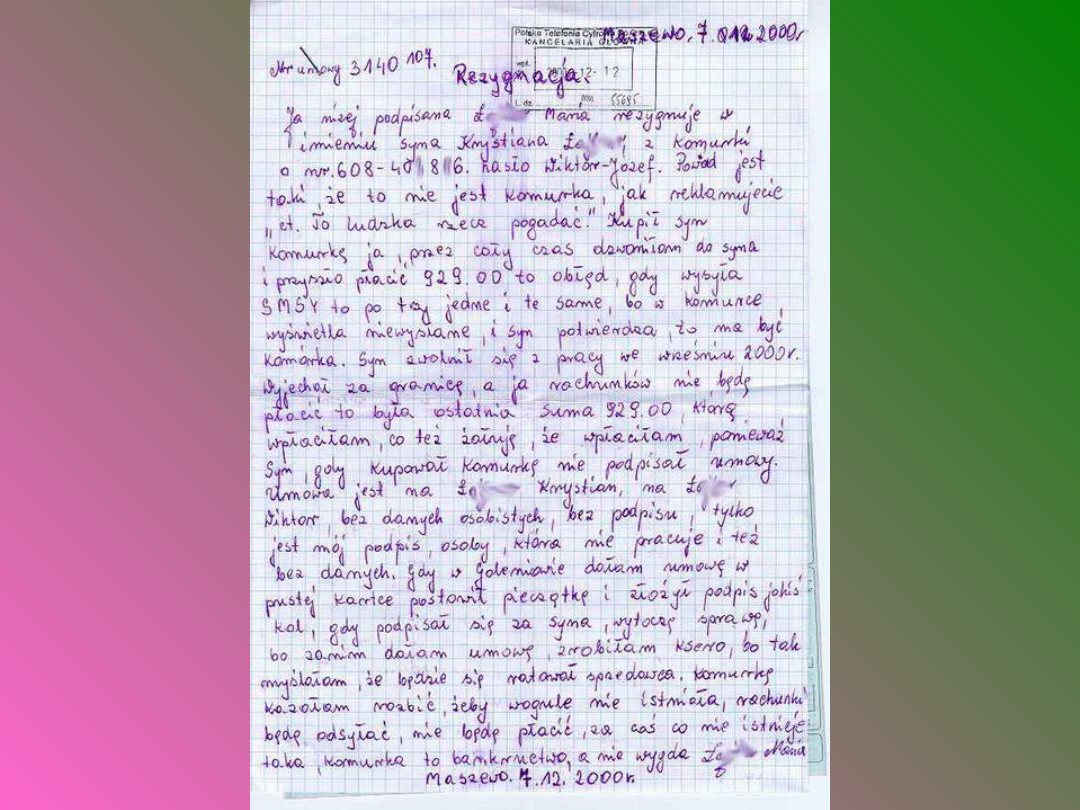 Maszewo. 7. 12. 2000r
Polska Telefonia Cyfrowa
KANCELARIA GŁÓWNA
Nr umowy 3140 107.
12-12
Rezygnacja.
L. dz. 55685
Ja niżej podpisana Maria rezygnuje w
imieniu syna Krystiana z komurki
o nr. 608-40 8 6. hasło Wiktor-Józef. Powód jest
taki, że to nie jest komurka, jak reklamujecie
„et. To ludzka rzecz pogadać." Kupił syn
komurkę ja, przez cały czas dzwoniłam do syna
i przyszło płacić 929.00 to obłęd, gdy wysyła
SMSY to po trzy jedne i te same, bo w komurce
wyświetla niewysłane, i syn potwierdza, to ma być
komórka. Syn zwolnił się z pracy we wrześniu 2000r.
wyjechał za granicę, a ja rachunków nie będę
płacić to była ostatnia suma 929.00, którą
wpłaciłam, co też żałuję, że wpłaciłam, ponieważ
Syn, gdy kupował komurkę nie podpisał umowy.
Umowa jest na Krystian, na
Wiktor, bez danych osobistych, bez podpisu, tylko
jest mój podpis, osoby, która nie pracuje i też
bez danych. Gdy w Goleniowie dałam umowę w
pustej kartce postawił pieczątkę i złożył podpis jakiś
kol, gdy podpisał się za syna, wytoczę sprawę,
bo zanim dałam umowę, zrobiłam ksero, bo tak
myślałam, że będzie się ratował sprzedawca. Komurkę
kazałam rozbić, żeby wogule nie istniała, rachunki
będę odsyłać, nie będę płacić, za coś co nie istnieje
taka, komurka to bankructwo, a nie wygda Maria
Maszewo. 7.12. 2000r.